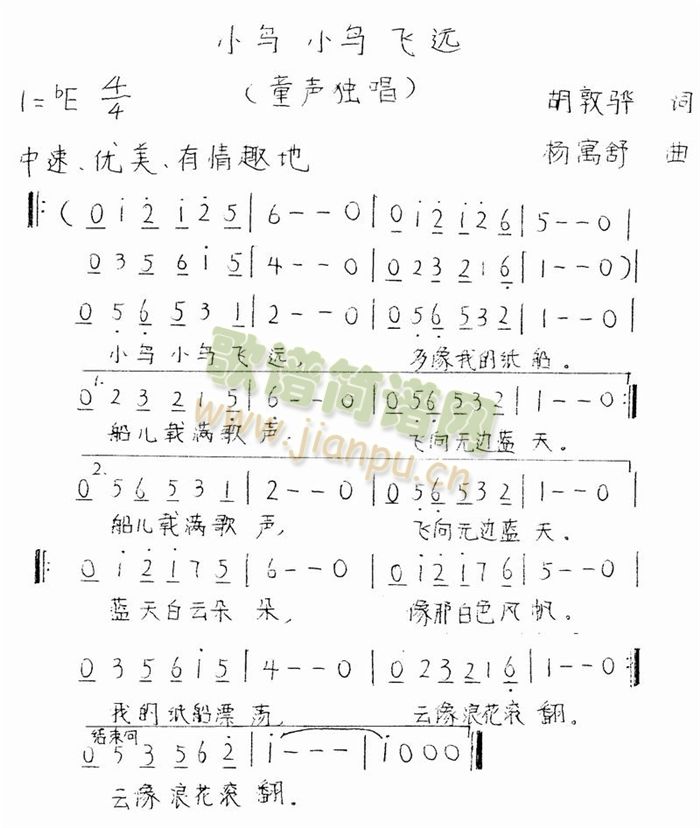 小鸟 小鸟 飞远
(童声独唱)
1=ᵇE 4/4
胡敦骅 词
中速、优美、有情趣地
杨寓舒 曲
‖: (0 i 2̇ i 2̇ 5 | 6 - - 0 | 0 i 2̇ i 2̇ 6 | 5 - - 0 |
0 3 5 6 i 5 | 4 - - 0 | 0 2 3 2 1 6̣ | 1 - - 0) |
0 5̣ 6̣ 5 3 1 | 2 - - 0 | 0 5̣ 6̣ 5 3 2 | 1 - - 0 |
小鸟小鸟飞远, 多像我的纸船。
1.
0 2 3 2 1 5 | 6 - - 0 | 0 5̣ 6̣ 5̣ 3 2 | 1 - - 0 :‖
船儿载满歌声, 飞向无边蓝天。
2.
0 5 6 5 3 1 | 2 - - 0 | 0 5̣ 6̣ 5 3 2 | 1 - - 0 |
船儿载满歌声, 飞向无边蓝天。
‖: 0 i 2̇ i 7 5 | 6 - - 0 | 0 i 2̇ i 7 6 | 5 - - 0 |
蓝天白云朵朵, 像那白色风帆。
0 3 5 6 i 5 | 4 - - 0 | 0 2 3 2 1 6̣ | 1 - - 0 :‖
我的纸船漂荡, 云像浪花滚翻。
结束句
0 5 3 5 6 2̇ | i - - - | i 0 0 0 ‖
云像浪花滚翻。
歌谱简谱网
www.jianpu.cn